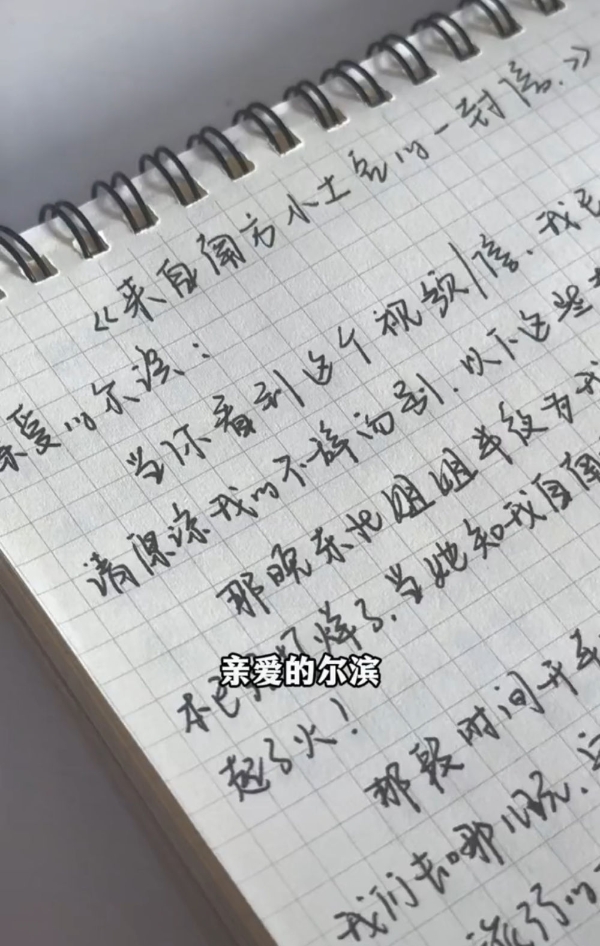 《来自南方小土豆的一封信.》
亲爱的尔滨:
当你看到这个视频/信、我已
请原谅我的不辞而别.以下这些
那晚东北姐姐半夜为我
本已 打烊了.当她知我自南
亲爱的尔滨
起了火!
那段时间开车
我们去哪儿玩.